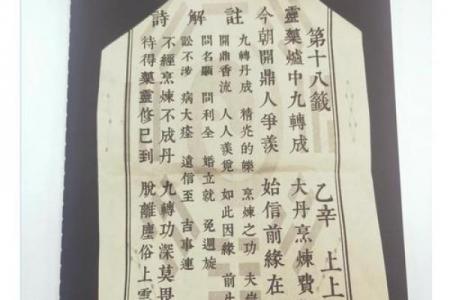 第十八籤 乙辛 上上
靈藥爐中九轉成 大丹烹煉費
今朝開鼎人爭羨 始信前緣在
註解詩
九轉丹成 精光的皪 烹煉之功 夫豈
開鼎香流 人人羨覓 如此因緣 前生
問名顯 問利全 婚立就 免週旋
訟不涉 病大痊 遠信至 吉事連
不經烹煉不成丹 九轉功深莫畏
待得藥靈修已到 脫離塵俗上雲